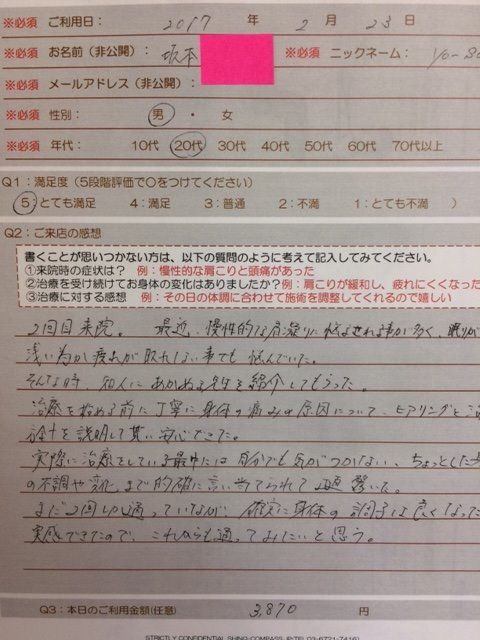 ※必須 ご利用日： 2017 年 2 月 23 日
※必須 お名前（非公開）： 坂本 ※必須 ニックネーム： Yo-
※必須 メールアドレス（非公開）：
※必須 性別： 男 ・ 女
※必須 年代： 10代 20代 30代 40代 50代 60代 70代以上
Q1：満足度（5段階評価で○をつけてください）
5：とても満足 4：満足 3：普通 2：不満 1：とても不満 ）
Q2：ご来店の感想
書くことが思いつかない方は、以下の質問のように考えて記入してみてください。
①来院時の症状は？ 例：慢性的な肩こりと頭痛があった
②治療を受け続けてお身体の変化はありましたか？ 例：肩こりが緩和し、疲れにくくなった
③治療に対する感想 例：その日の体調に合わせて施術を調整してくれるので嬉しい
2回目来院。 最近、慢性的な肩凝りに悩まされる事が多く、眠りが
浅い為か疲れが取れない事でも悩んでいた。
そんな時、知人にあかぬま先生を紹介してもらった。
治療を始める前に丁寧に身体の痛みの原因について、ヒアリングと治
方針を説明して貰い安心できた。
実際に治療をしている最中には自分でも気がつかない、ちょっとした
の不調や変化まで的確に言い当てられて 驚いた。
まだ2回しか通っていないが、確実に身体の調子は良くなった
実感できたので、これからも通ってみたいと思う。
Q3：本日のご利用金額(任意) 3,870 円
STRICTLY CONFIDENTIAL SHINQ-COMPASS.JP(TEL:03-6721-7416)